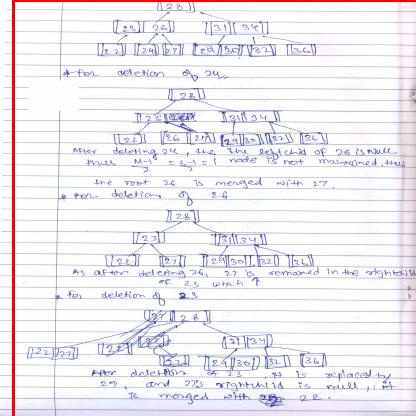 28
22 26 31 34
22 24 27 29 30 32 36
* for deletion of 24
28
23 31 34
22 26 27 29 30 32 36
After deleting 24, the the leftchild of 26 is Null.
thus M-1/2 = 5-1/2 = 1 node is not maintained, thus
the root 26 is merged with 27.
* For deletion of 26
28
23 31 34
22 27 29 30 32 36
As after deleting 26, 27 is remained in the rightchild
of 23 which
* for deletion of 23
27 28
31 34
22 27 22 29 30 32 36
After deletion of 23, is replaced by
and 27's rightchild is null, it
is merged with 22.